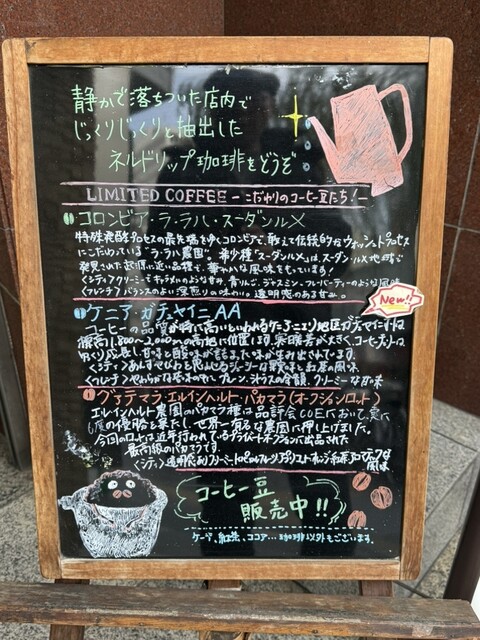 静かで落ちついた店内で
じっくりじっくりと抽出した
ネルドリップ珈琲をどうぞ
LIMITED COFFEE －こだわりのコーヒー豆たち！－
コロンビア・ラ・ラハ・スーダンルメ
特殊発酵プロセスの最先端をゆくコロンビアで、敢えて伝統的なウォッシュトプロセス
にこだわっている"ラ・ラハ農園"。希少種"スーダンルメ"は、スーダン・ルメ地域で
発見された起源に近い品種で、華やかな風味をもっている！
＜シティ＞クリーミーでキャラメルのような甘み、青りんご、ジャスミン、フルーパーティーのような風味
＜フレンチ＞バランスのよい深煎りの味わい。透明感のある甘み。
New!!
ケニア・ガチャイニAA
コーヒーの品質が特に高いといわれるケニアニエリ地区ガチャイニは
標高1,800～2,000mの高地に位置します。寒暖差が大きく、コーヒーチェリーは
ゆっくり成長し、甘味と酸味が詰まった味が生み出されています。
＜シティ＞あんずやびわと思わせるジューシーな果実味と紅茶の風味
＜フレンチ＞やわらかな苦味の中に、プレーン、シトラスの余韻。クリーミーな甘味
グァテマラ・エルインヘルト・パカマラ(オークションロット)
エルインヘルト農園のパカマラ種は品評会COEにおいて、実に
6度の優勝を果たし、世界一有名な農園に押し上げました。
今回のロットは近年行われているプライベートオークションに出品された
最高級のパカマラです。
＜シティ＞透明感あり
風味
コーヒー豆
販売中!!
ケーキ、紅茶、ココア…珈琲以外もございます。